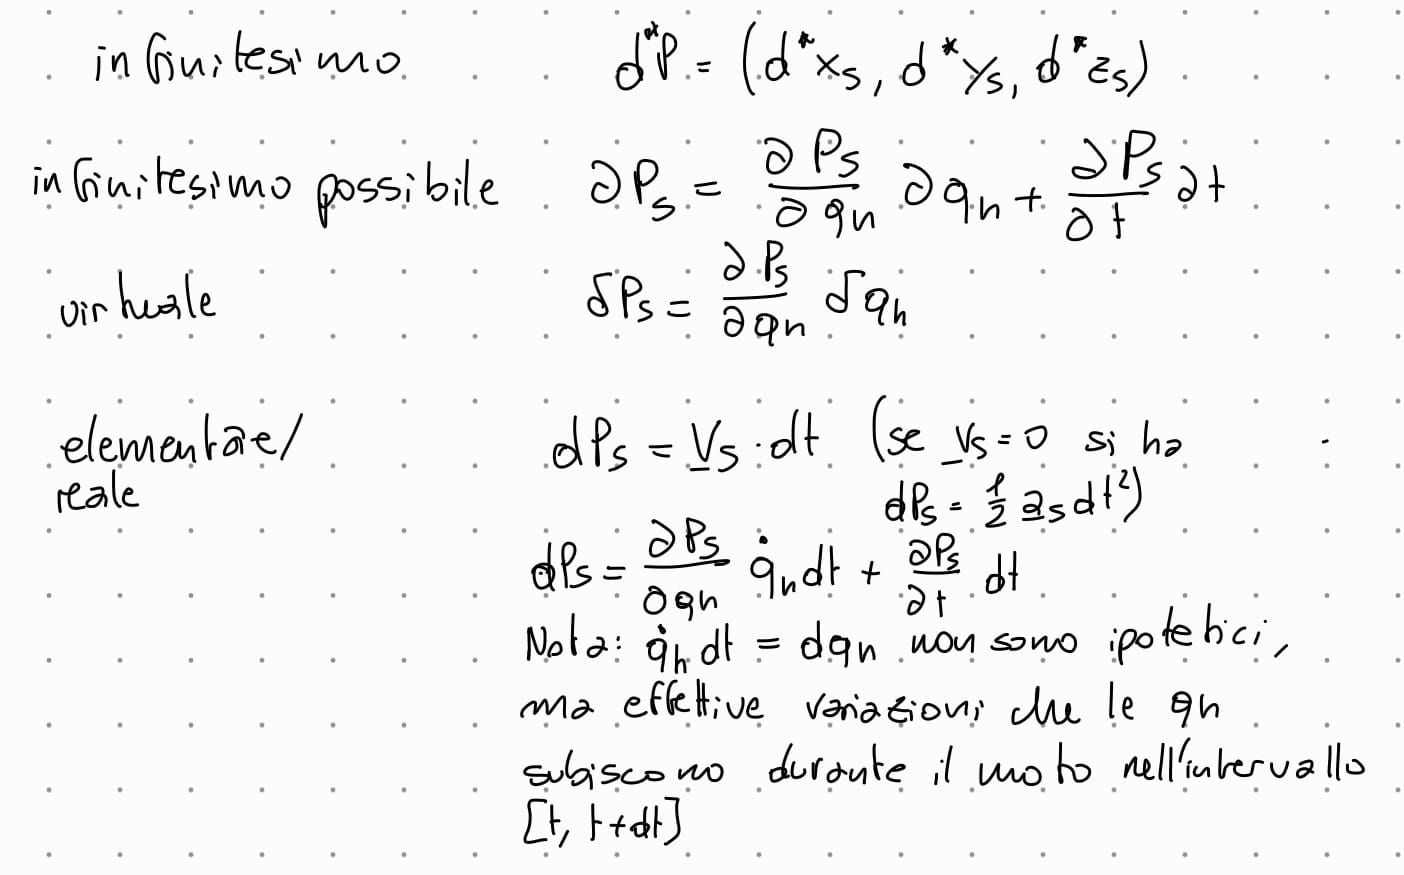 infinitesimo d*P = (d*xs, d*ys, d*zs)
infinitesimo possibile ∂Ps = ∂Ps/∂qh ∂qh + ∂Ps/∂t ∂t
virtuale δPs = ∂Ps/∂qh δqh
elementare/ dPs = Vs · dt (se Vs = 0 si ha
reale dPs = 1/2 as dt²)
dPs = ∂Ps/∂qh q̇h dt + ∂Ps/∂t dt
Nota: q̇h dt = dqh non sono ipotetici,
ma effettive variazioni che le qh
subiscono durante il moto nell'intervallo
[t, t+dt]